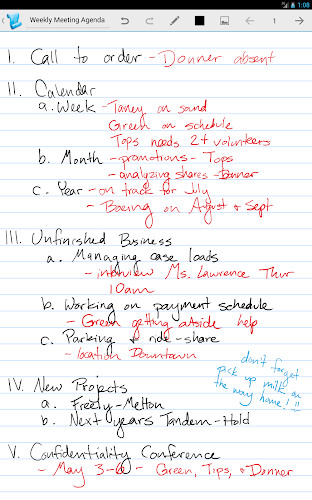 1:08
Weekly Meeting Agenda
1
I. Call to order - Donner absent
II. Calendar
a. Week - Taney on sand
Green on schedule
Tops needs 2+ volunteers
b. Month - promotions - Tops
- analyzing shares - Donner
c. Year - on track for July
- Boeing on August + Sept
III. Unfinished Business
a. Managing case loads
- interview Ms. Lawrence Thur
10am
b. Working on payment schedule
- Green getting outside help
c. Parking + ride-share
- location Downtown
don't forget
pick up milk on
the way home!!
IV. New Projects
a. Freely - Melton
b. Next years Tandem - Hold
V. Confidentiality Conference
- May 3-6 - Green, Tips, + Donner